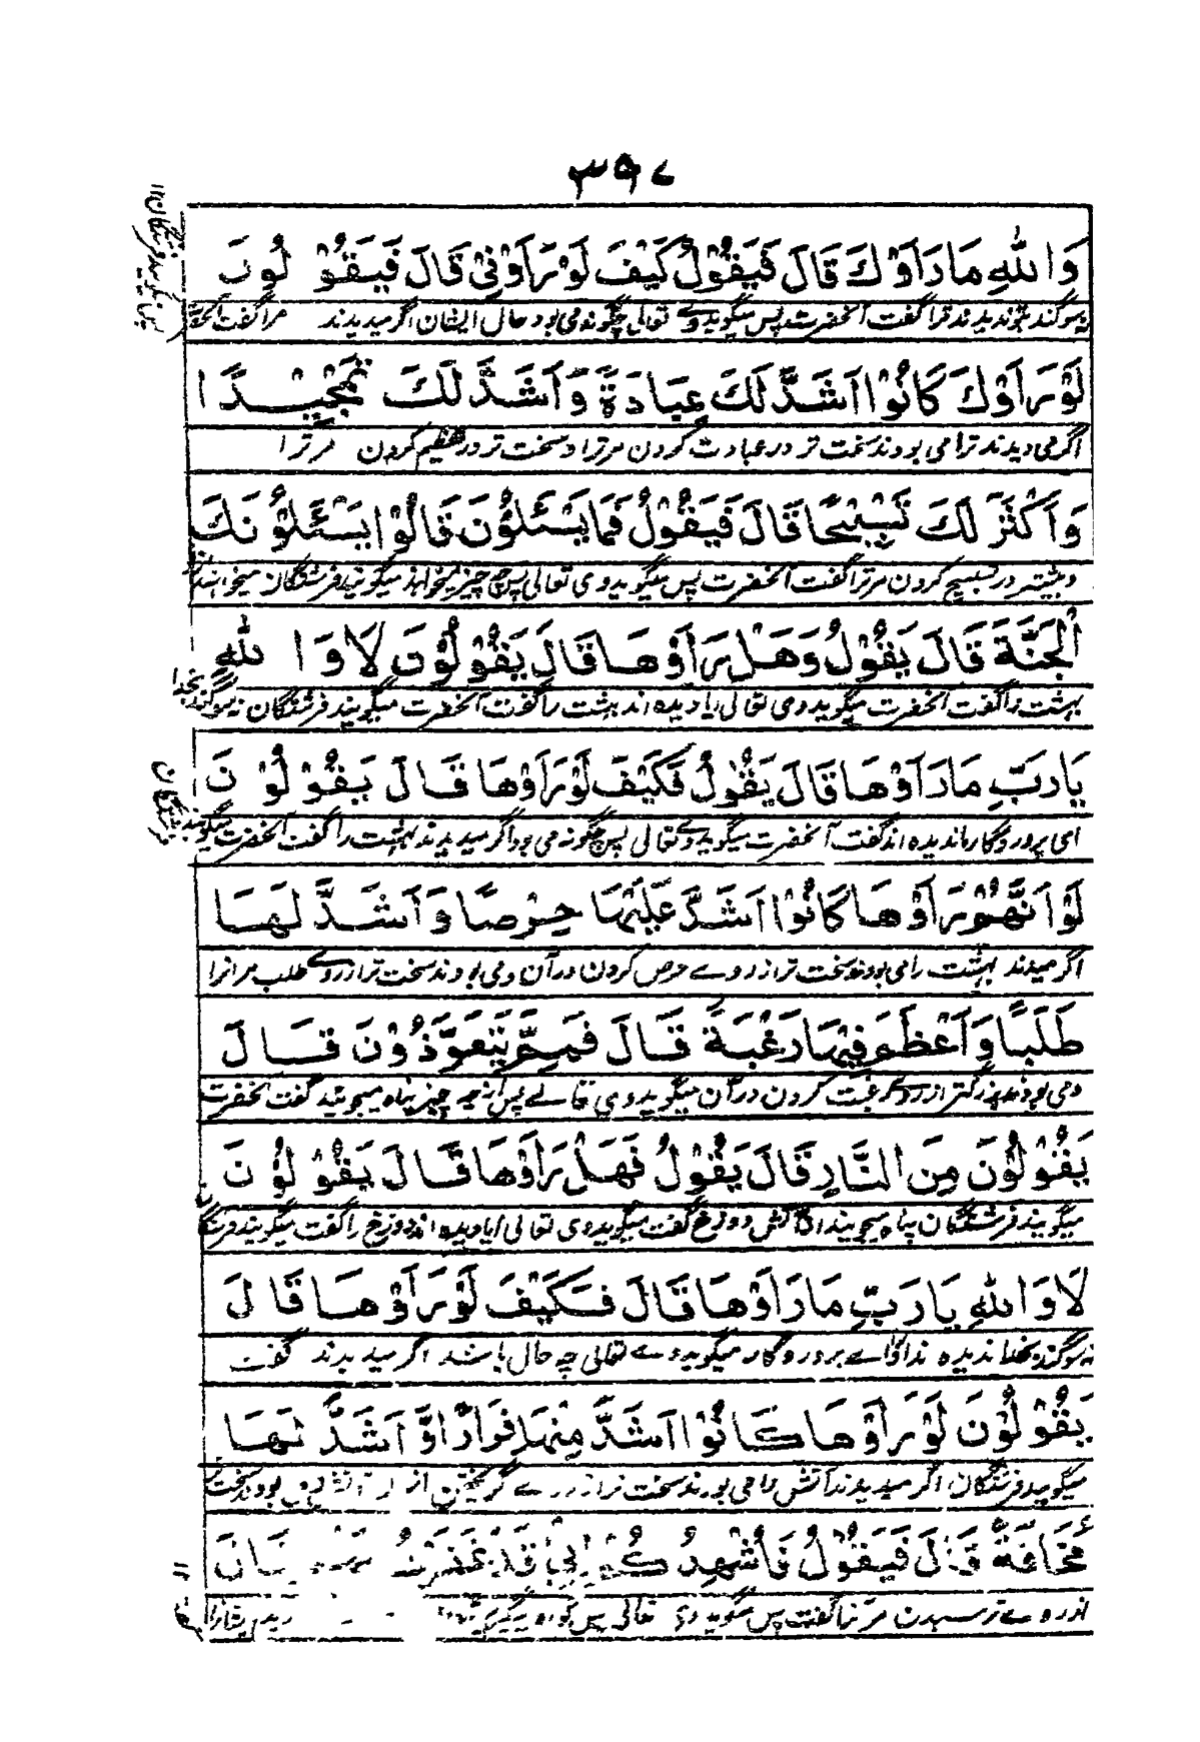 ٣٩٧
وَاللهِ مَارَاَوْكَ قَالَ فَيَقُوْلُ كَيْفَ لَوْرَاَوْنِيْ قَالَ فَيَقُوْلُوْنَ
گفت آنحضرت پس میگوید وے تعالی چگونه می بود حال ایشان اگر میدیدند مرا
لَوْرَاَوْكَ كَانُوْا اَشَدَّ لَكَ عِبَادَةً وَّاَشَدَّ لَكَ تَمْجِيْدًا
اگر می دیدند ترا می بودند سخت تر در عبادت کردن مرترا و سخت تر در تعظیم کردن مرترا
وَاَكْثَرَ لَكَ تَسْبِيْحًا قَالَ فَيَقُوْلُ فَمَا يَسْئَلُوْنَ قَالُوْا يَسْئَلُوْنَكَ
و بیشتر در تسبیح کردن مرترا گفت آنحضرت پس میگوید وی تعالی پس چه چیز میخواهند میگویند فرشتگان میخواهند
الْجَنَّةَ قَالَ يَقُوْلُ وَهَلْ رَاَوْهَا قَالَ يَقُوْلُوْنَ لَا وَاللهِ
بهشت را گفت آنحضرت میگوید وی تعالی آیا دیده اند بهشت را گفت آنحضرت میگویند فرشتگان نه سوگند بخدا
يَارَبِّ مَارَاَوْهَا قَالَ يَقُوْلُ فَكَيْفَ لَوْرَاَوْهَا قَالَ يَقُوْلُوْنَ
ای پروردگار ما ندیده اند گفت آنحضرت میگوید وے تعالی پس چگونه می بود اگر میدیدند بهشت را گفت آنحضرت میگویند
لَوْ اَنَّهُمْ رَاَوْهَا كَانُوْا اَشَدَّ عَلَيْهَا حِرْصًا وَاَشَدَّ لَهَا
اگر میدیدند بهشت را می بودند سخت تر از روے حرص کردن در آن و می بودند سخت تر از روے طلب مر آنرا
طَلَبًا وَاَعْظَمَ فِيْهَا رَغْبَةً قَالَ فَمِمَّ يَتَعَوَّذُوْنَ قَالَ
و می بودند بزرگتر از روے رغبت کردن در آن میگوید وی تعالے پس از چه چیز پناه میجویند گفت آنحضرت
يَقُوْلُوْنَ مِنَ النَّارِ قَالَ يَقُوْلُ فَهَلْ رَاَوْهَا قَالَ يَقُوْلُوْنَ
میگویند فرشتگان پناه میجویند از آتش دوزخ گفت میگوید وی تعالی آیا دیده اند دوزخ را گفت میگویند فرشتگان
لَا وَاللهِ يَارَبِّ مَارَاَوْهَا قَالَ فَكَيْفَ لَوْرَاَوْهَا قَالَ
نه سوگند بخدا ندیده اند آنرا اے پروردگار میگوید وے تعالی چه حال باشد اگر میدیدند گفت
يَقُوْلُوْنَ لَوْرَاَوْهَا كَانُوْا اَشَدَّ مِنْهَا فِرَارًا وَّاَشَدَّ لَهَا
میگویند فرشتگان اگر میدیدند آتش را می بودند سخت تر از روے گریختن از
مَخَافَةً قَالَ فَيَقُوْلُ فَاُشْهِدُكُمْ اَنِّيْ قَدْ غَفَرْتُ
از روے ترسیدن مر آنرا گفت پس میگوید وی تعالی پس گواه میگیرم